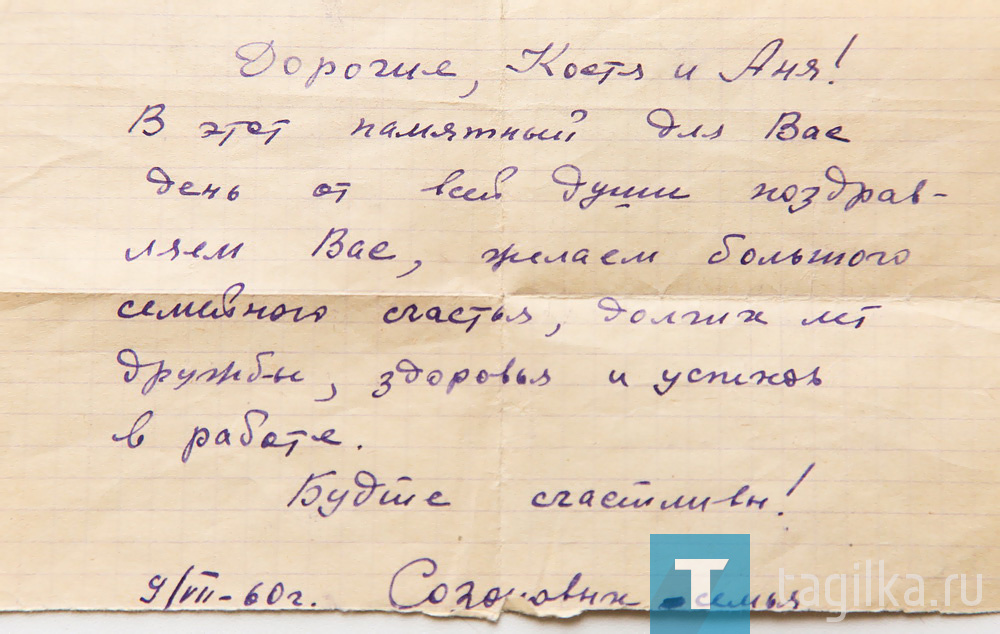 Дорогие, Костя и Аня!
В этот памятный для Вас
день от всей души поздрав-
ляем Вас, желаем большого
семейного счастья, долгих лет
дружбы, здоровья и успехов
в работе.
Будте счастливы!
9/VII-60г. семья
T tagilka.ru